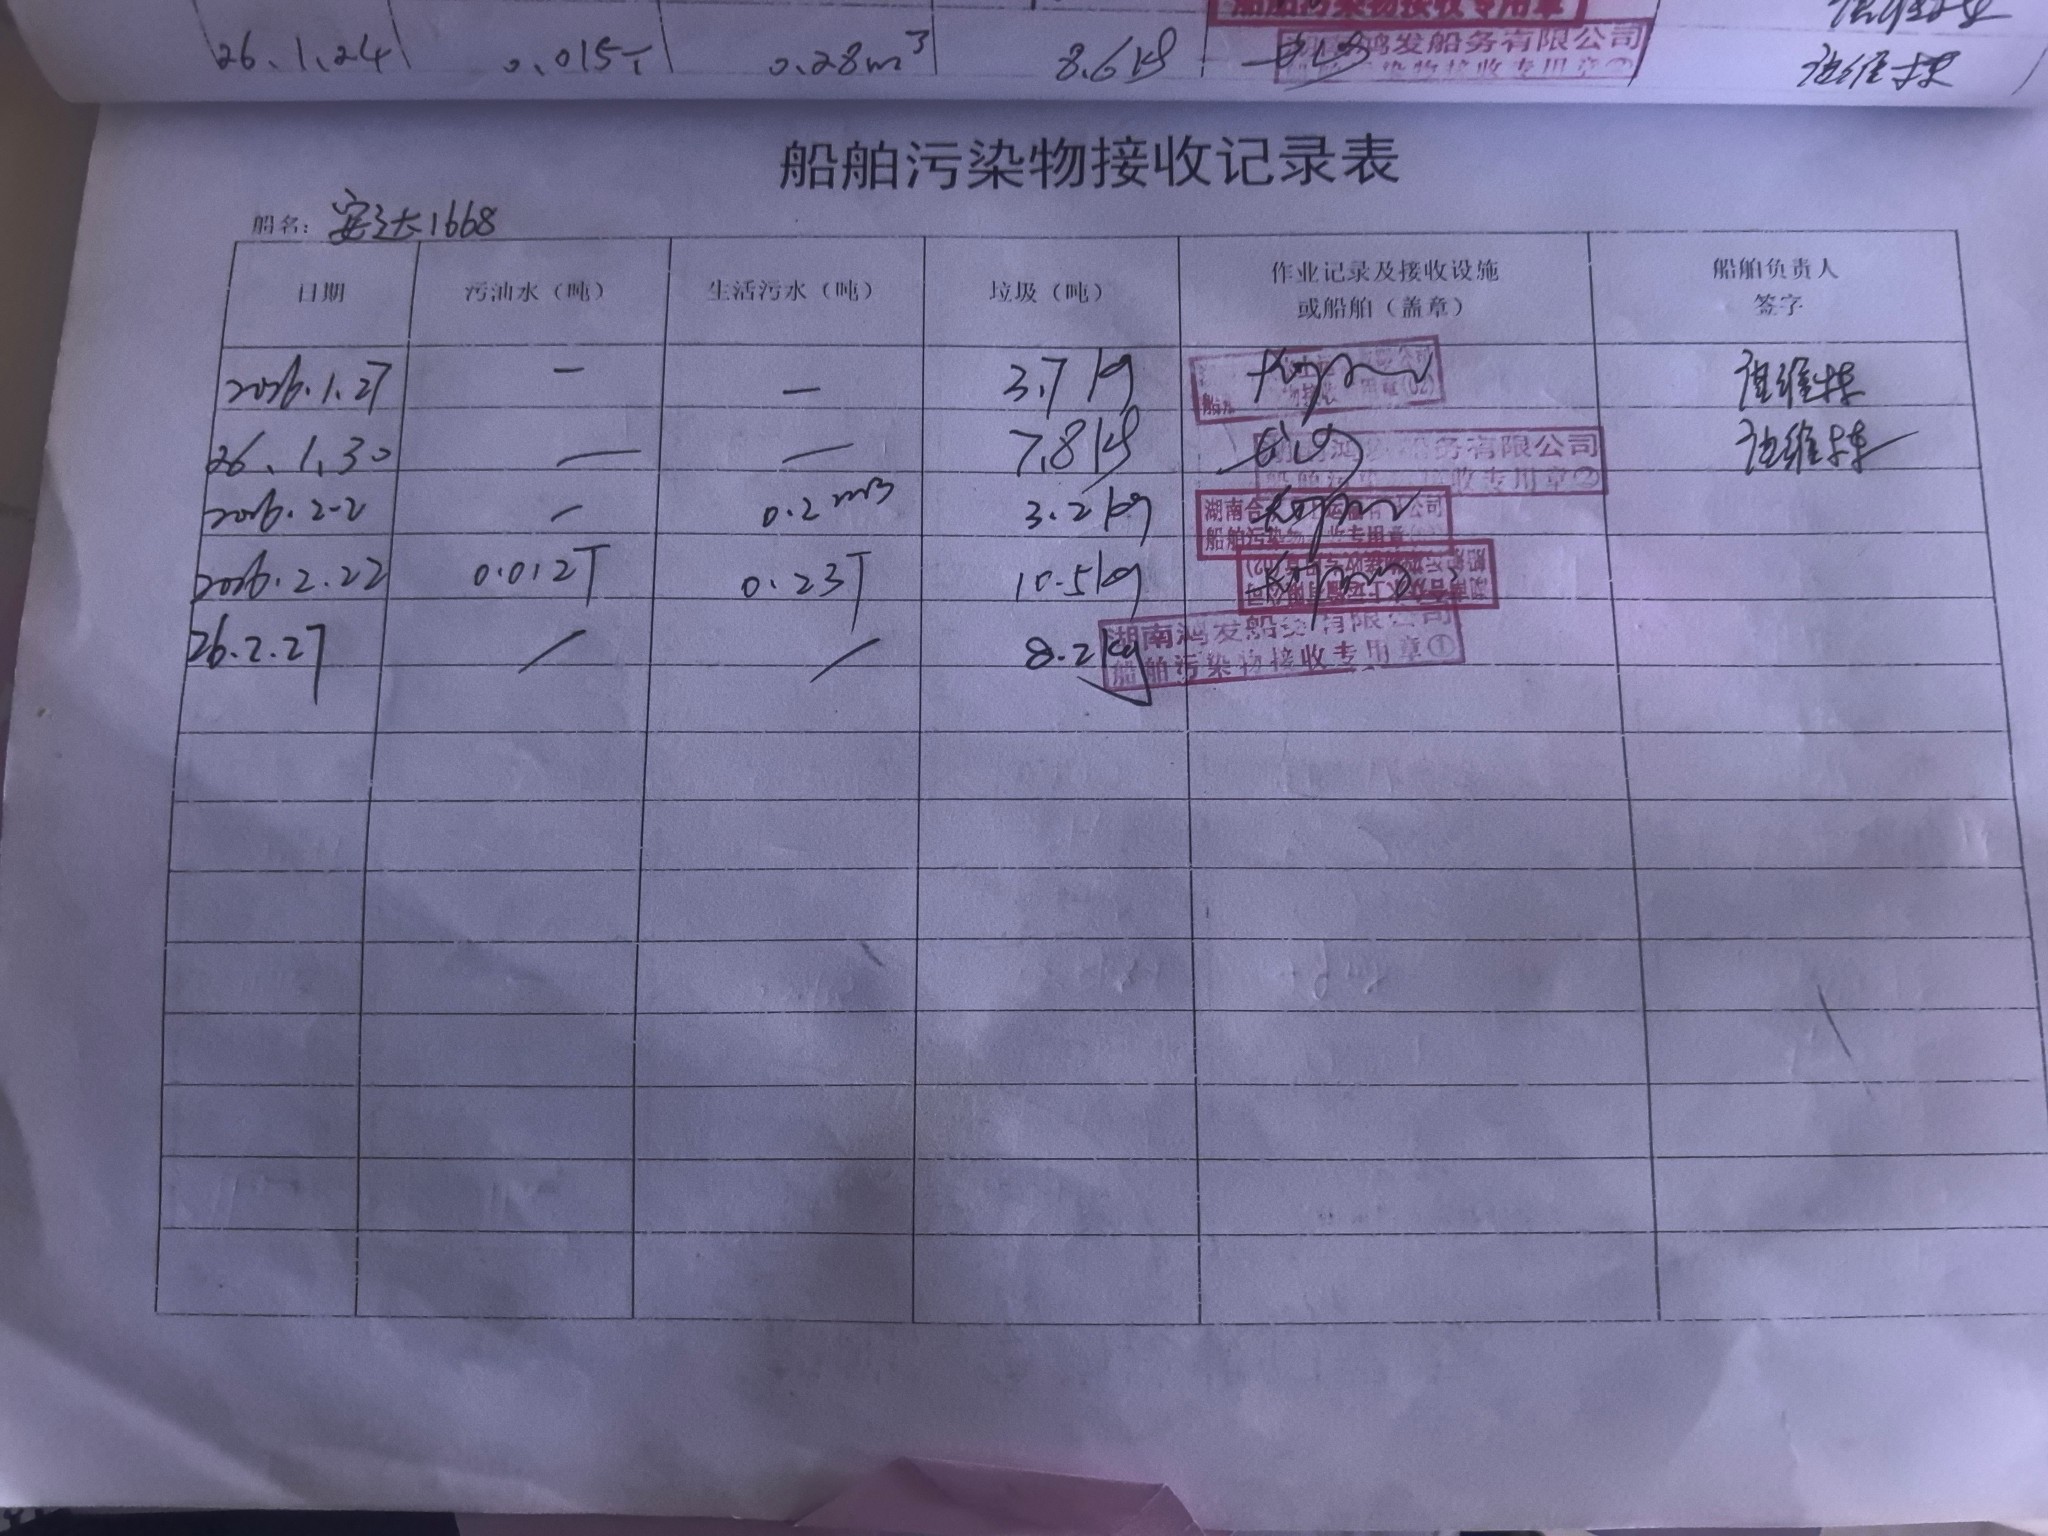 船舶污染物接收专用章
26.1.24 0.015T 0.28m³ 8.6kg 鸿发船务有限公司
染物接收专用章②
船舶污染物接收记录表
船名：安达1668
日期 污油水（吨） 生活污水（吨） 垃圾（吨） 作业记录及接收设施或船舶（盖章） 船舶负责人签字
2026.1.27 — — 3.7kg 用章(02)
26.1.30 — — 7.8kg 鸿 务有限公司
收专用章②
2026.2.2 — 0.2m3 3.2kg 湖南合 公司
船舶污染物 收专用章
2026.2.22 0.012T 0.23T 10.5kg
26.2.27 / / 8.2kg 湖南鸿发船务有限公司
船舶污染物接收专用章①